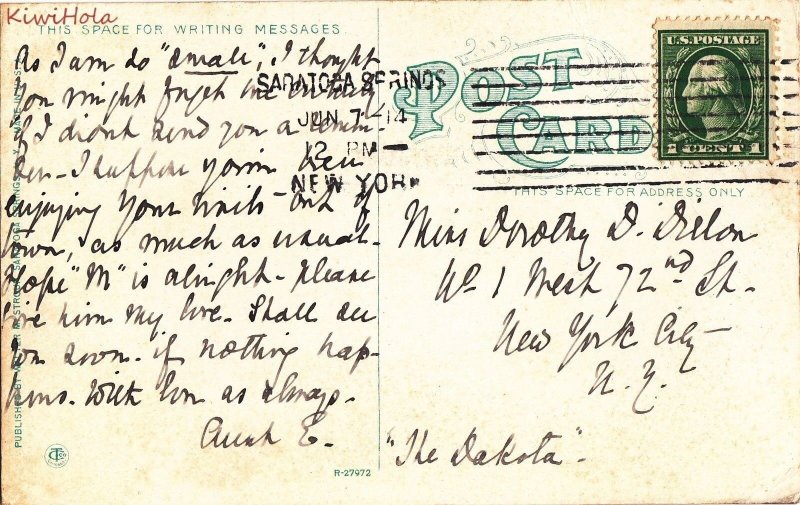 KiwiHola
THIS SPACE FOR WRITING MESSAGES.
As I am so "small", I thought
you might forget me entirely
if I didn't send you a remin-
der - I suppose you've been
enjoying your visits - out of
town, as much as usual -
Hope "M" is alright - please
give him my love. Shall see
you soon. if nothing hap-
pens. With love as always.
Aunt E.
PUBLISHED BY
SARATOGA SPRINGS
JUN 7 - 14
12 PM
NEW YORK
POST
CARD
U.S. POSTAGE
1 CENT 1
THIS SPACE FOR ADDRESS ONLY
Miss Dorothy D. Dillon
No. 1 West 72nd St.
New York City
N. Y.
"The Dakota".
R-27972